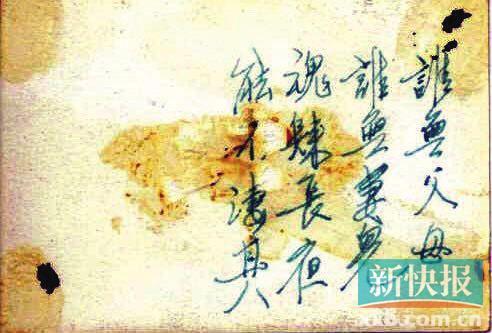 誰無父母
誰無妻兒
魂 長夜
能不凄其
新快报
xkb.com.cn